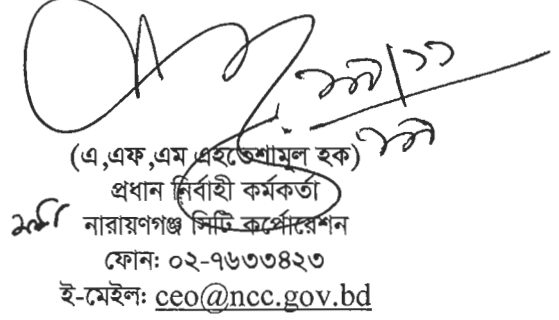 (এ,এফ,এম এহতেশামুল হক)
প্রধান নির্বাহী কর্মকর্তা
নারায়ণগঞ্জ সিটি কর্পোরেশন
ফোন: ০২-৭৬৩৩৪২৩
ই-মেইল: ceo@ncc.gov.bd